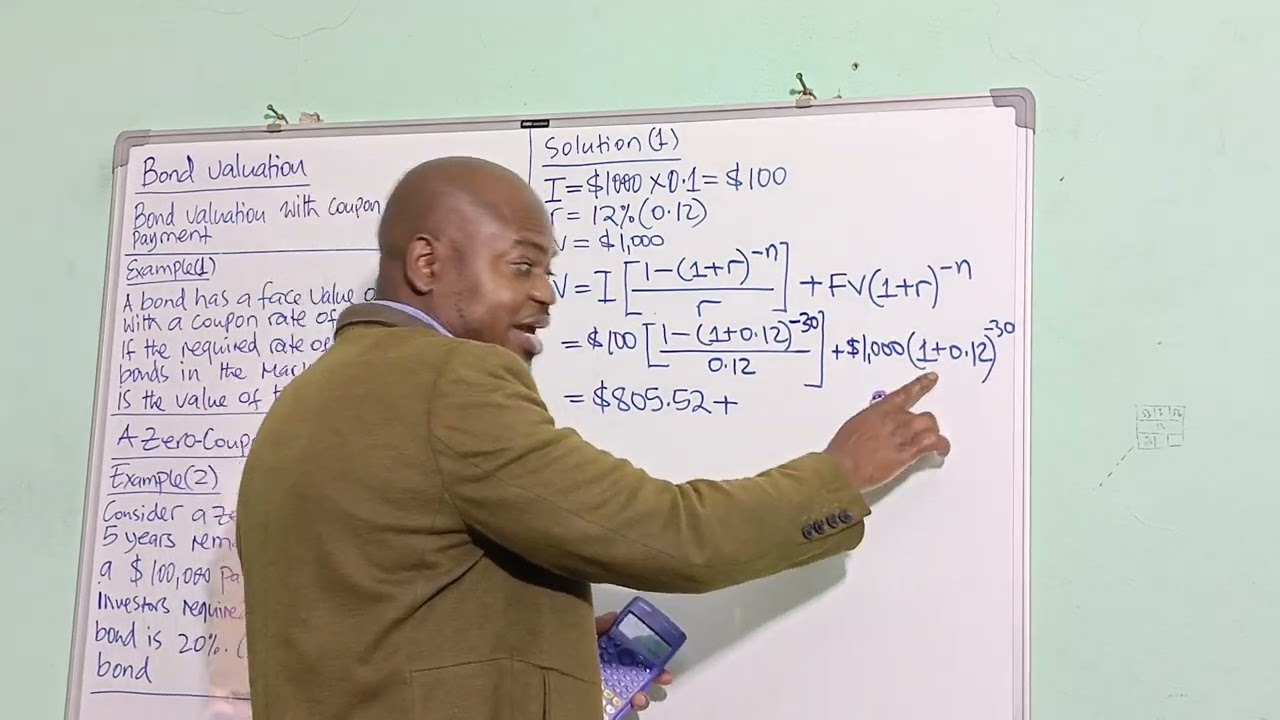 Bond valuation
Bond valuation with coupon
Payment
Example(1)
A bond has a face value
with a coupon rate of
If the required rate of
bonds in the
is the value of
A Zero-Coup
Example(2)
Consider a
5 years
a $100,000
Investors required
bond is 20%.
bond
Solution(1)
I = $1000 × 0.1 = $100
= 12% (0.12)
V = $1,000
V = I [1-(1+r)^-n / r] + FV(1+r)^-n
= $100 [1-(1+0.12)^-30 / 0.12] + $1,000(1+0.12)^-30
= $805.52 +